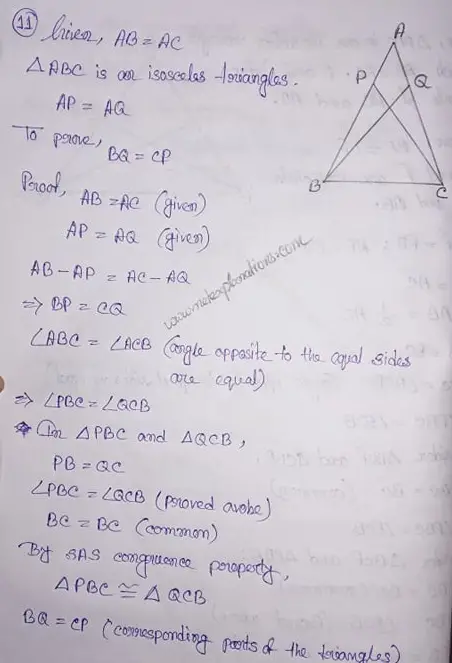 (11) Given, AB = AC
△ABC is an isosceles triangles.
AP = AQ
To prove,
BQ = CP
Proof,
AB = AC (given)
AP = AQ (given)
AB - AP = AC - AQ
⇒ BP = CQ
∠ABC = ∠ACB (angle opposite to the equal sides
are equal)
⇒ ∠PBC = ∠QCB
In △PBC and △QCB,
PB = QC
∠PBC = ∠QCB (proved avobe)
BC = BC (common)
By SAS congruence property,
△PBC ≅ △QCB
BQ = CP (corresponding parts of the triangles)
A
P
Q
B
C
www.netexplanations.com